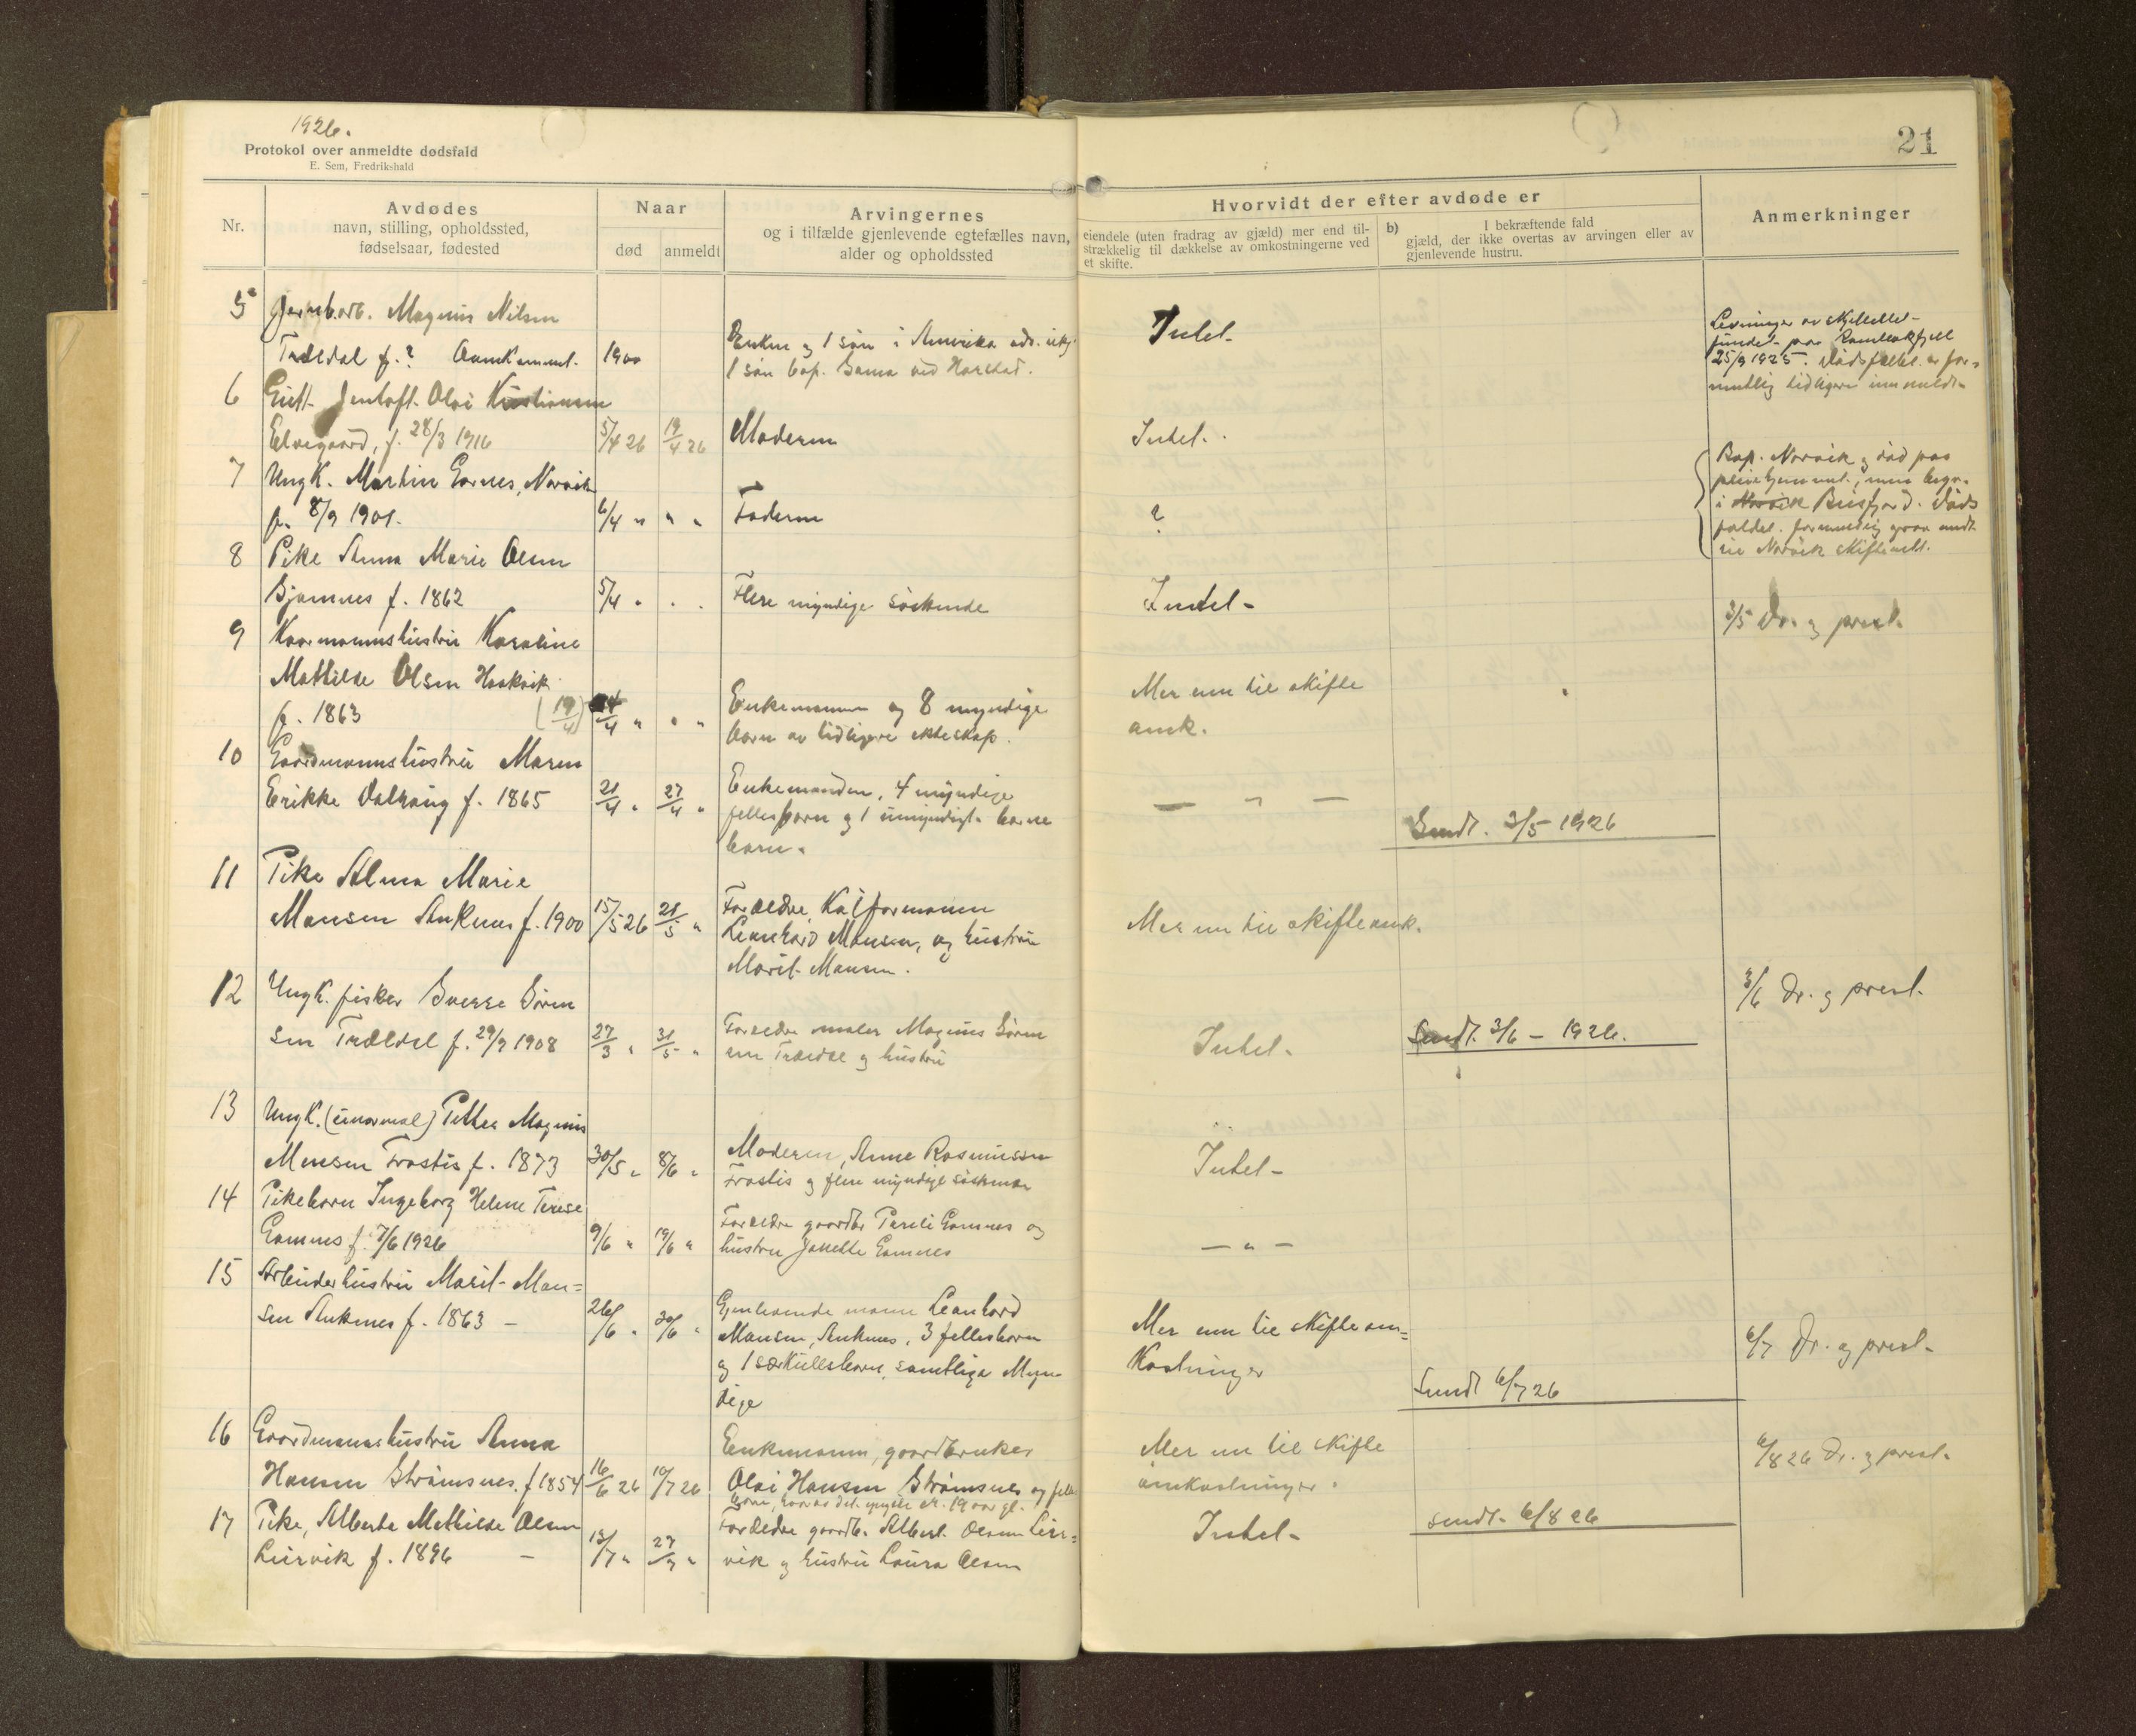 1926.
Protokol over anmeldte dødsfald
E. Sem, Fredrikshald
21
Nr.
Avdødes
navn, stilling, opholdssted,
fødselsaar, fødested
Naar
død
anmeldt
Arvingernes
og i tilfælde gjenlevende egtefælles navn,
alder og opholdssted
Hvorvidt der efter avdøde er
eiendele (uten fradrag av gjæld) mer end til-
strækkelig til dækkelse av omkostningerne ved
et skifte.
b)
I bekræftende fald
gjæld, der ikke overtas av arvingen eller av
gjenlevende hustru.
Anmerkninger
5 Magnus Nilsen
Træeldal f. ? 1900
Enken og 1 søn i Amerika
1 søn bop. ved Harstad.
Intet.
Levninger av skjelettet
fundet paa
25/9 1925. Dødsfaldet er for-
mentlig tidligere innmeldt
6 Gutt Olai Kristiansen
Elvegaard, f. 28/3 1916 5/4 26 19/4 26 Moderen Intet.
7 Ungk. Martin , Narvik
f. 8/9 1901. 6/4 " " " Faderen ?
Bop. Narvik og død paa
pleiehjemmet, men begr.
i Narvik Beisfjord. Døds
faldet formentlig
Narvik skifterett.
8 Pike Anna Marie Olsen
f. 1862 5/4 " . . Flere myndige søskende Intet -
3/5 Dr. og prest.
9 Kaarmannshustru Karoline
Mathilde Olsen Haakvik
f. 1863 (19/4) 14/4 " " " Enkemann og 8 myndige
barn av tidligere ekteskap.
Mer enn til skifte
omk.
10 Gaardmannshustru Maren
Erikke f. 1865 21/4 " 27/4 " Enkemanden, 4 myndige
fellesbarn og 1 umyndigt barne
barn.
— " —
Sendt. 3/5 1926
11 Pike Alma Marie
Monsen Ankenes f. 1900 15/5 26 21/5 " Forældre, Kaiformann
Leonhard Monsen, og hustru
Marit Monsen.
Mer enn til skifteomk.
12 Ungk. fisker Sverre Sørn
sen Træeldal f. 29/9 1908 27/3 " 31/5 " Forældre maler Magnus Sørn
sen Træeldal og hustru
Intet.
Sendt. 3/6 - 1926.
3/6 Dr. og prest.
13 Ungk. (unormal) Petter Magnus
Monsen Frostis f. 1873 30/5 " 8/6 " Moderen, Anne Rasmussen
Frostis og flere myndige søskende
Intet -
14 Pikebarn Ingeborg Helene Terese
f. 7/6 1926 9/6 " 19/6 " Forældre gaardbr.
hustru
— " —
15 Arbeiderhustru Marit Mon=
sen Ankenes f. 1863 - 26/6 " 30/6 " Gjenlevende mann Leonhard
Monsen, Ankenes, 3 fellesbarn
og 1 særkullsbarn, samtlige Myn
dige
Mer enn til skifteom=
kostninger
Sendt 6/7 26
6/7 Dr. og prest.
16 Gaardmannshustru Anna
Hansen Strømsnes. f 1854 16/6 26 10/7 26 Enkemann, gaardbruker
Olai Hansen Strømsnes og felles
barn, hvorav det yngste er 19 aar gl.
Mer enn til skifte
omkostninger.
sendt. 6/8 26
6/8 26 Dr. og prest.
17 Pike, Alberte Mathilde Olsen
Leirvik f. 1896 - 13/7 " 27/7 " Forældre gaardb. Albert Olsen Leir=
vik og hustru Laura Olsen
Intet -